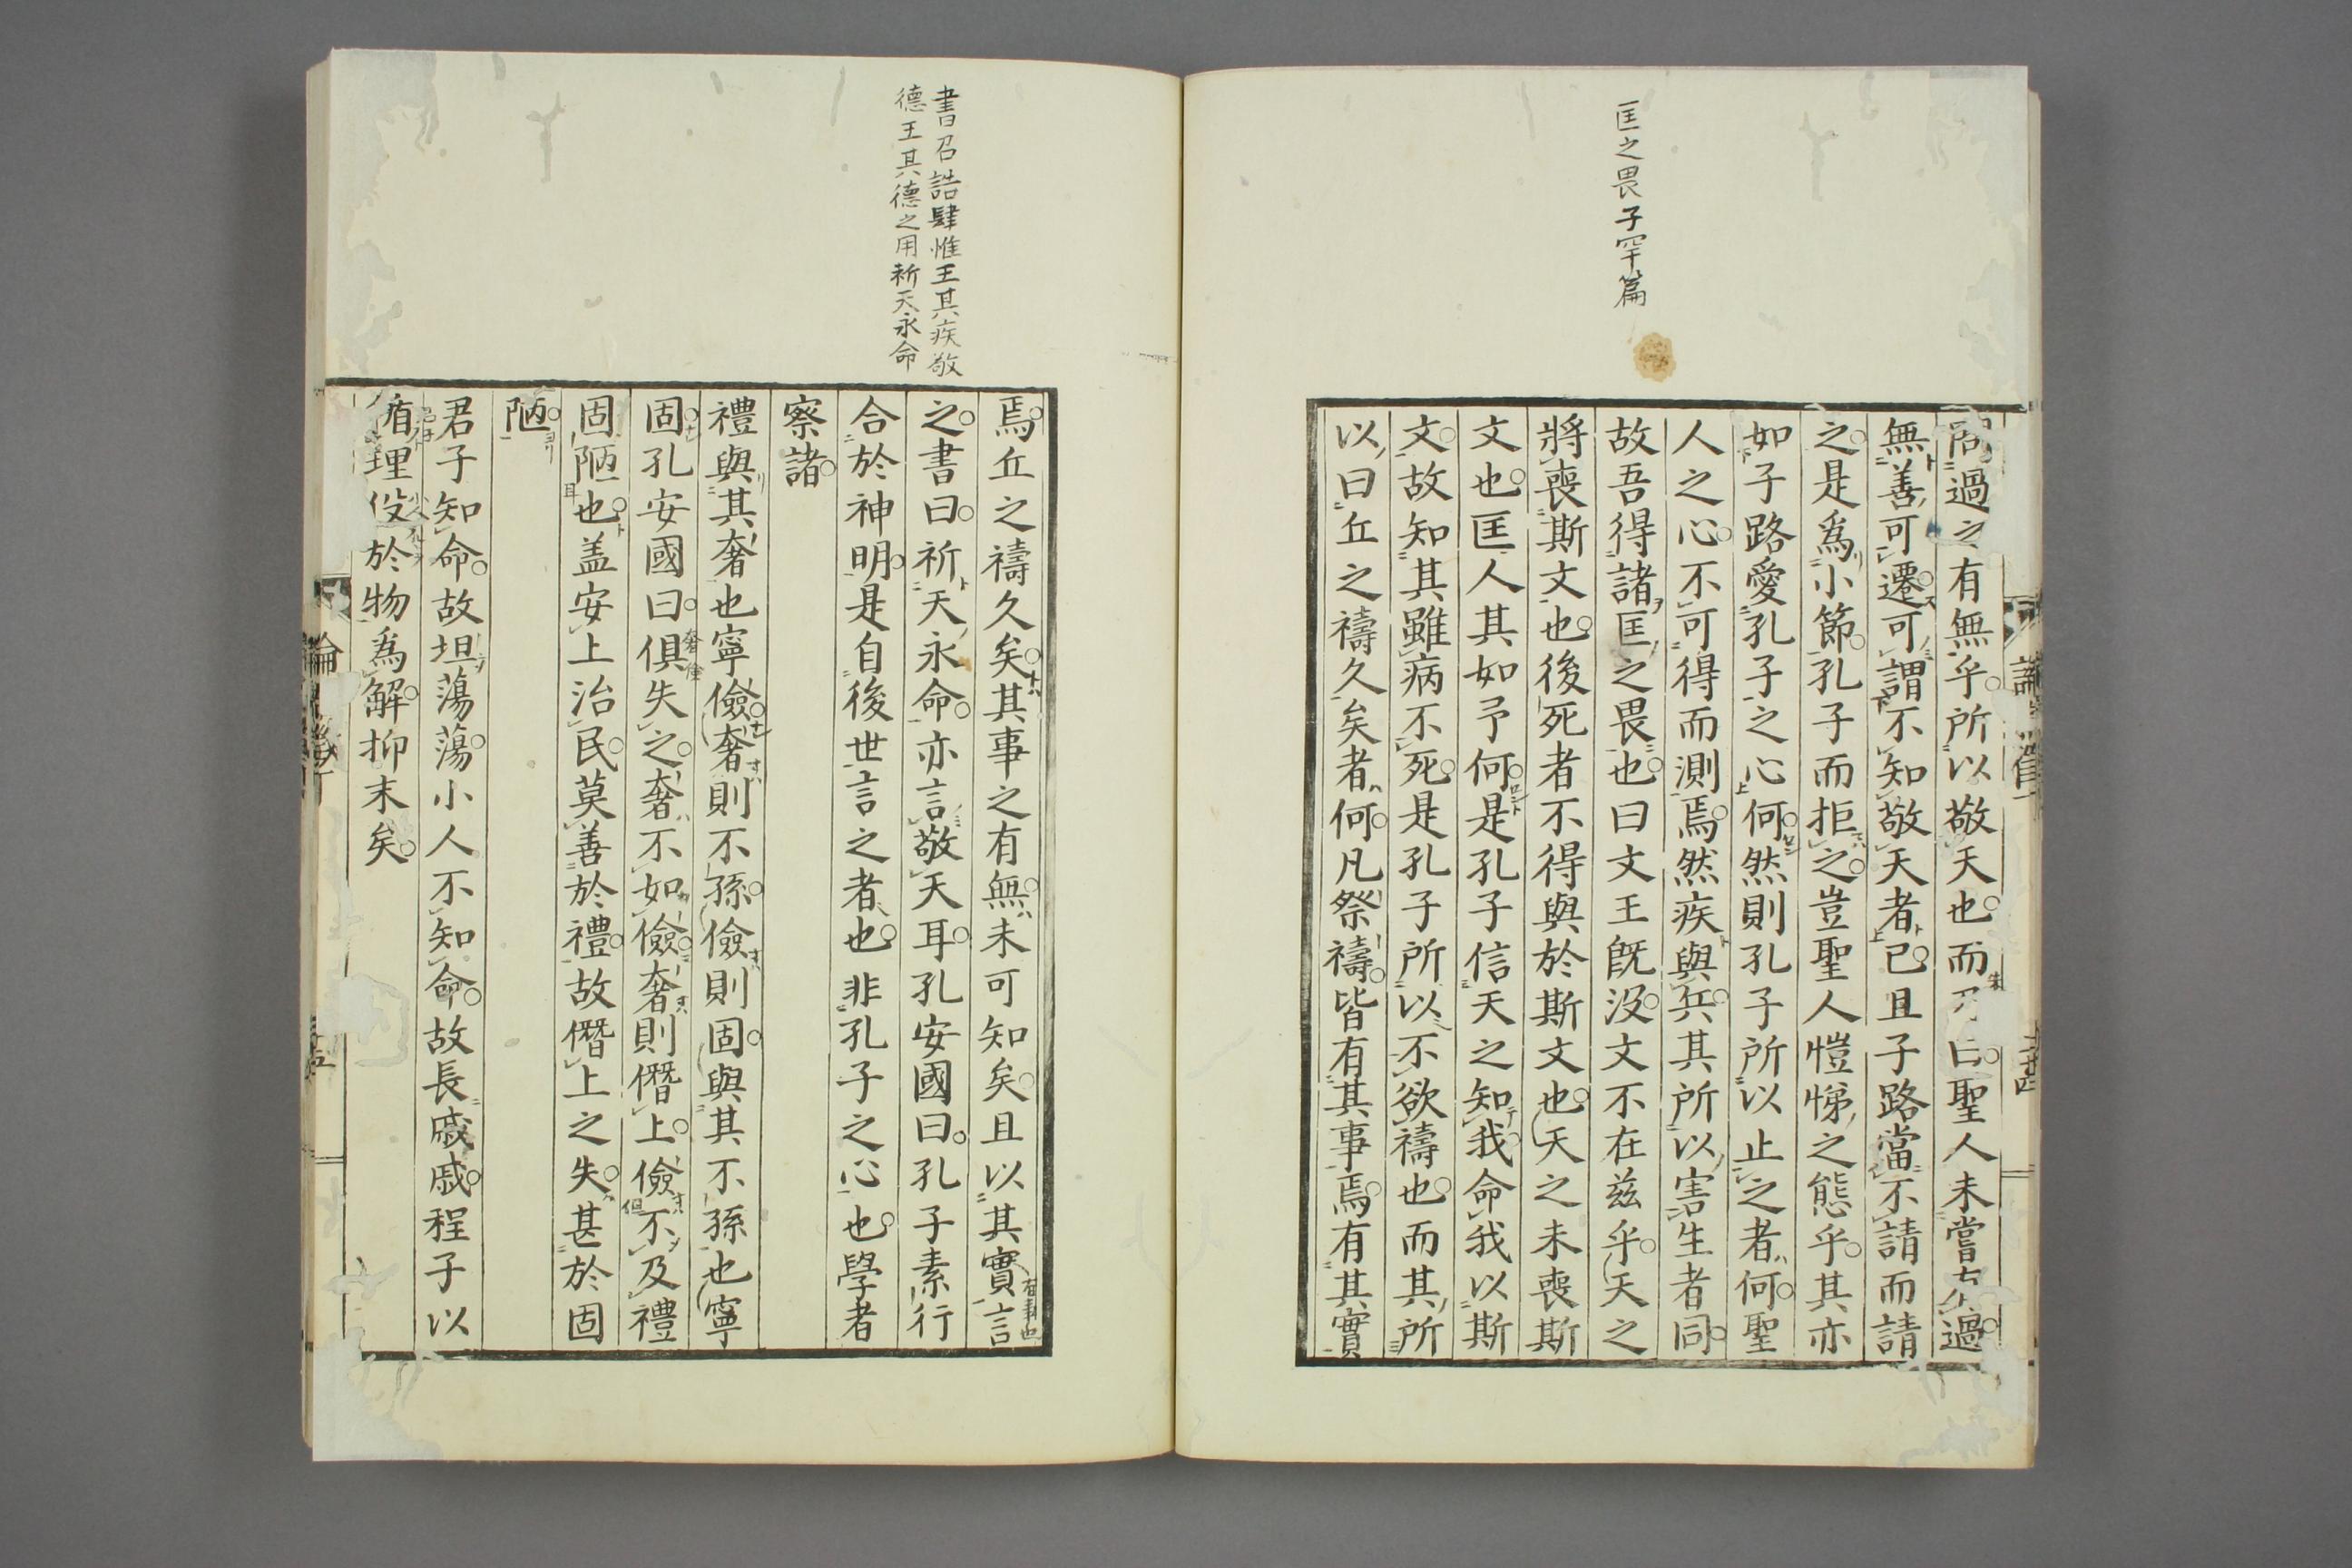 匡之畏子罕篇
過之有無乎所以敬天也而曰聖人未嘗有過
無善可遷可謂不知敬天者已且子路當不請而請
之是爲小節孔子而拒之豈聖人愷悌之態乎其亦
如子路愛孔子之心何然則孔子所以止之者何聖
人之心不可得而測焉然疾與兵其所以害生者同
故吾得諸匡之畏也曰文王既没文不在兹乎天之
將喪斯文也後死者不得與於斯文也天之未喪斯
文也匡人其如予何是孔子信天之知我命我以斯
文故知其雖病不死是孔子所以不欲禱也而其所
以曰丘之禱久矣者何凡祭禱皆有其事焉有其實
書召誥肆惟王其疾敬
德王其德之用祈天永命
焉丘之禱久矣其事之有無未可知矣且以其實言
之書曰祈天永命亦言敬天耳孔安國曰孔子素行
合於神明是自後世言之者也非孔子之心也學者
察諸
禮與其奢也寧儉奢則不孫儉則固與其不孫也寧
固孔安國曰俱失之奢不如儉奢則僭上儉不及禮
固陋也盖安上治民莫善於禮故僭上之失甚於固
陋
君子知命故坦蕩蕩小人不知命故長戚戚程子以
循理役於物爲解抑末矣